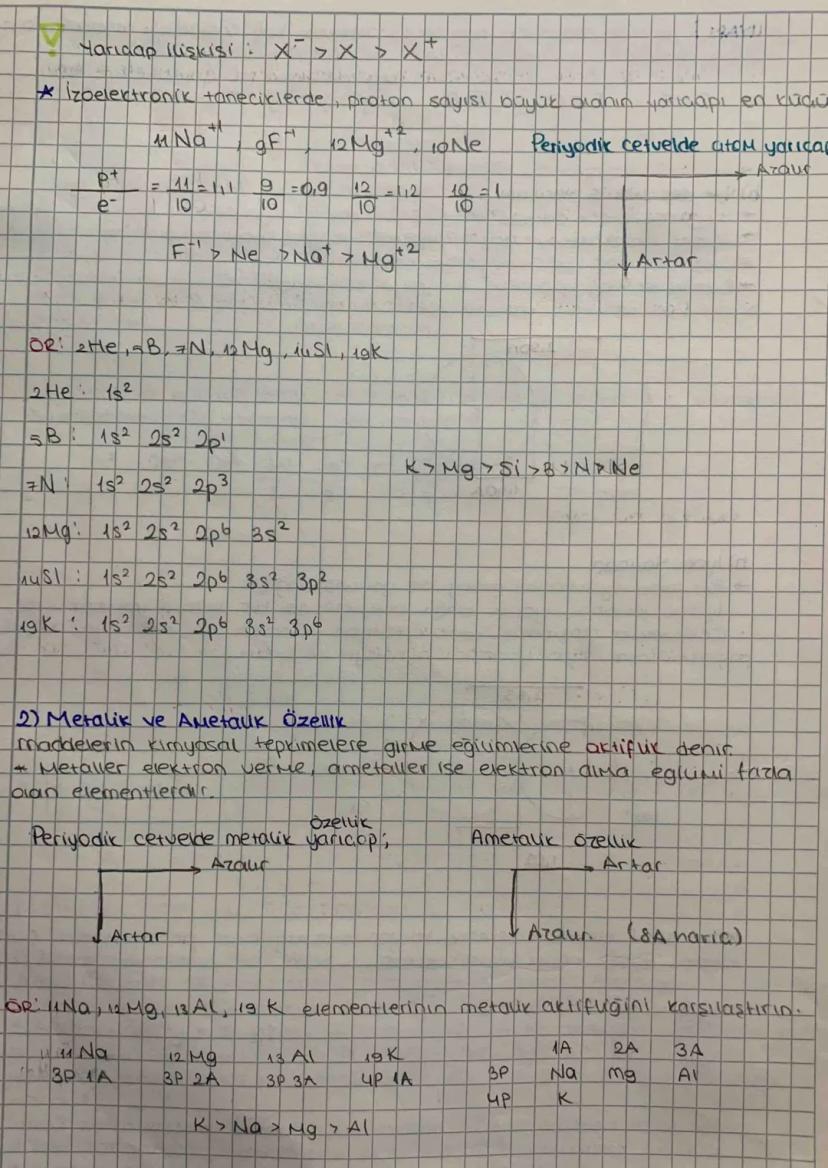 Yarıçap ilişkisi : X⁻ > X > X⁺
* İzoelektronik taneciklerde, proton sayısı büyük olanın yarıçapı en küçü
₁₁Na⁺¹, ₉F⁻¹, ₁₂Mg⁺², ₁₀Ne
Periyodik cetvelde atom yarıça
Azalır
Artar
p⁺/e⁻ = 11/10 = 1,1 9/10 = 0,9 12/10 = 1,2 10/10 = 1
F⁻¹ > Ne > Na⁺ > Mg⁺²
ÖR: ₂He, ₅B, ₇N, ₁₂Mg, ₁₄Si, ₁₉K
₂He : 1s²
₅B : 1s² 2s² 2p¹
K > Mg > Si > B > N > Ne
₇N : 1s² 2s² 2p³
₁₂Mg : 1s² 2s² 2p⁶ 3s²
₁₄Si : 1s² 2s² 2p⁶ 3s² 3p²
₁₉K : 1s² 2s² 2p⁶ 3s² 3p⁶
2) Metalik ve Ametalik Özellik
maddelerin kimyasal tepkimelere girme eğilimlerine aktiflik denir.
* Metaller elektron verme, ametaller ise elektron alma eğilimi fazla
olan elementlerdir.
Periyodik cetvelde metalik özellik yarıçap;
Azalır
Artar
Ametalik özellik
Artar
Azalır. (8A hariç)
ÖR: ₁₁Na, ₁₂Mg, ₁₃Al, ₁₉K elementlerinin metalik aktifliğini karşılaştırın.
₁₁Na ₁₂Mg ₁₃Al ₁₉K
3P 1A 3P 2A 3P 3A 4P 1A
1A 2A 3A
3P Na mg Al
4P K
K > Na > Mg > Al